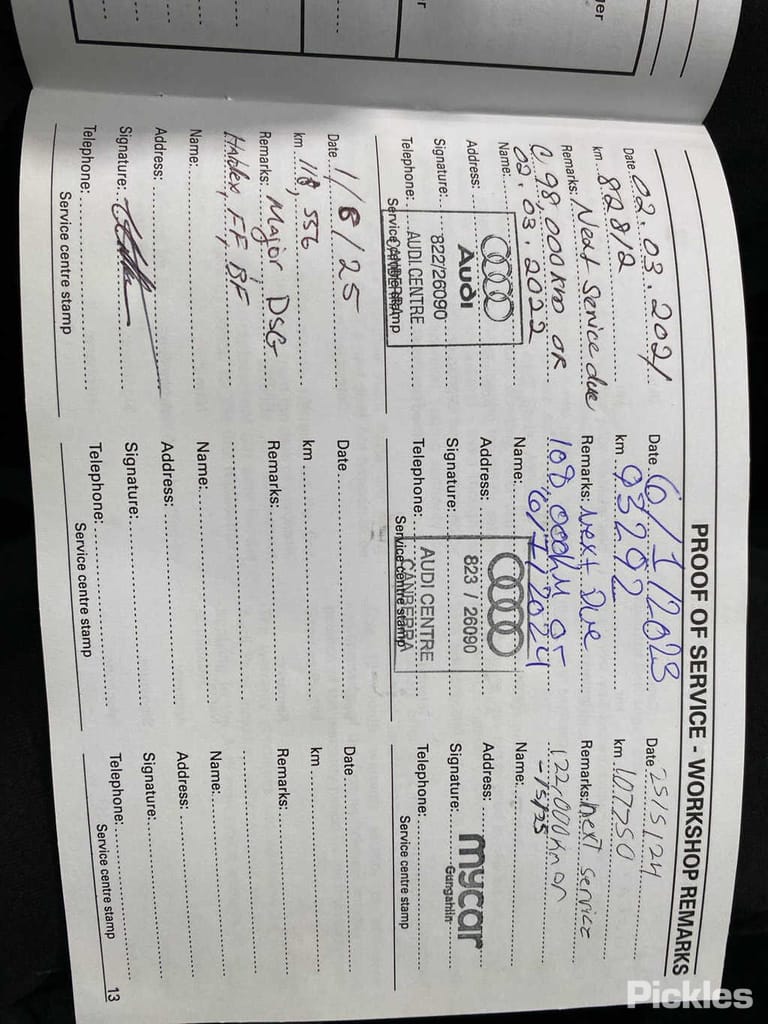 ger
er
PROOF OF SERVICE - WORKSHOP REMARKS
Date 02.03.2021
km 82812
Remarks: Next service due
@ 98,000km OR
02.03.2022
Name:
Address:
Audi
Signature:
822/26090
Telephone:
AUDI CENTRE
CANBERRA
Service centre stamp
Date 6/1/2023
km 93292
Remarks: Next Due
108,000km or
6/1/2024
Name:
Address:
Signature:
823 / 26090
Telephone:
AUDI CENTRE
CANBERRA
Service centre stamp
Date 25/5/24
km 107250
Remarks: next service
122,000km or
Name:
Address:
mycar
Gungahlin
Signature:
Telephone:
Service centre stamp
Date 1/8/25
km 118,556
Remarks: Major DSG
Haldex, FF, BF
Name:
Address:
Signature:
Telephone:
Service centre stamp
Date
km
Remarks:
Name:
Address:
Signature:
Telephone:
Service centre stamp
Date
km
Remarks:
Name:
Address:
Signature:
Telephone:
Service centre stamp
13
Pickles